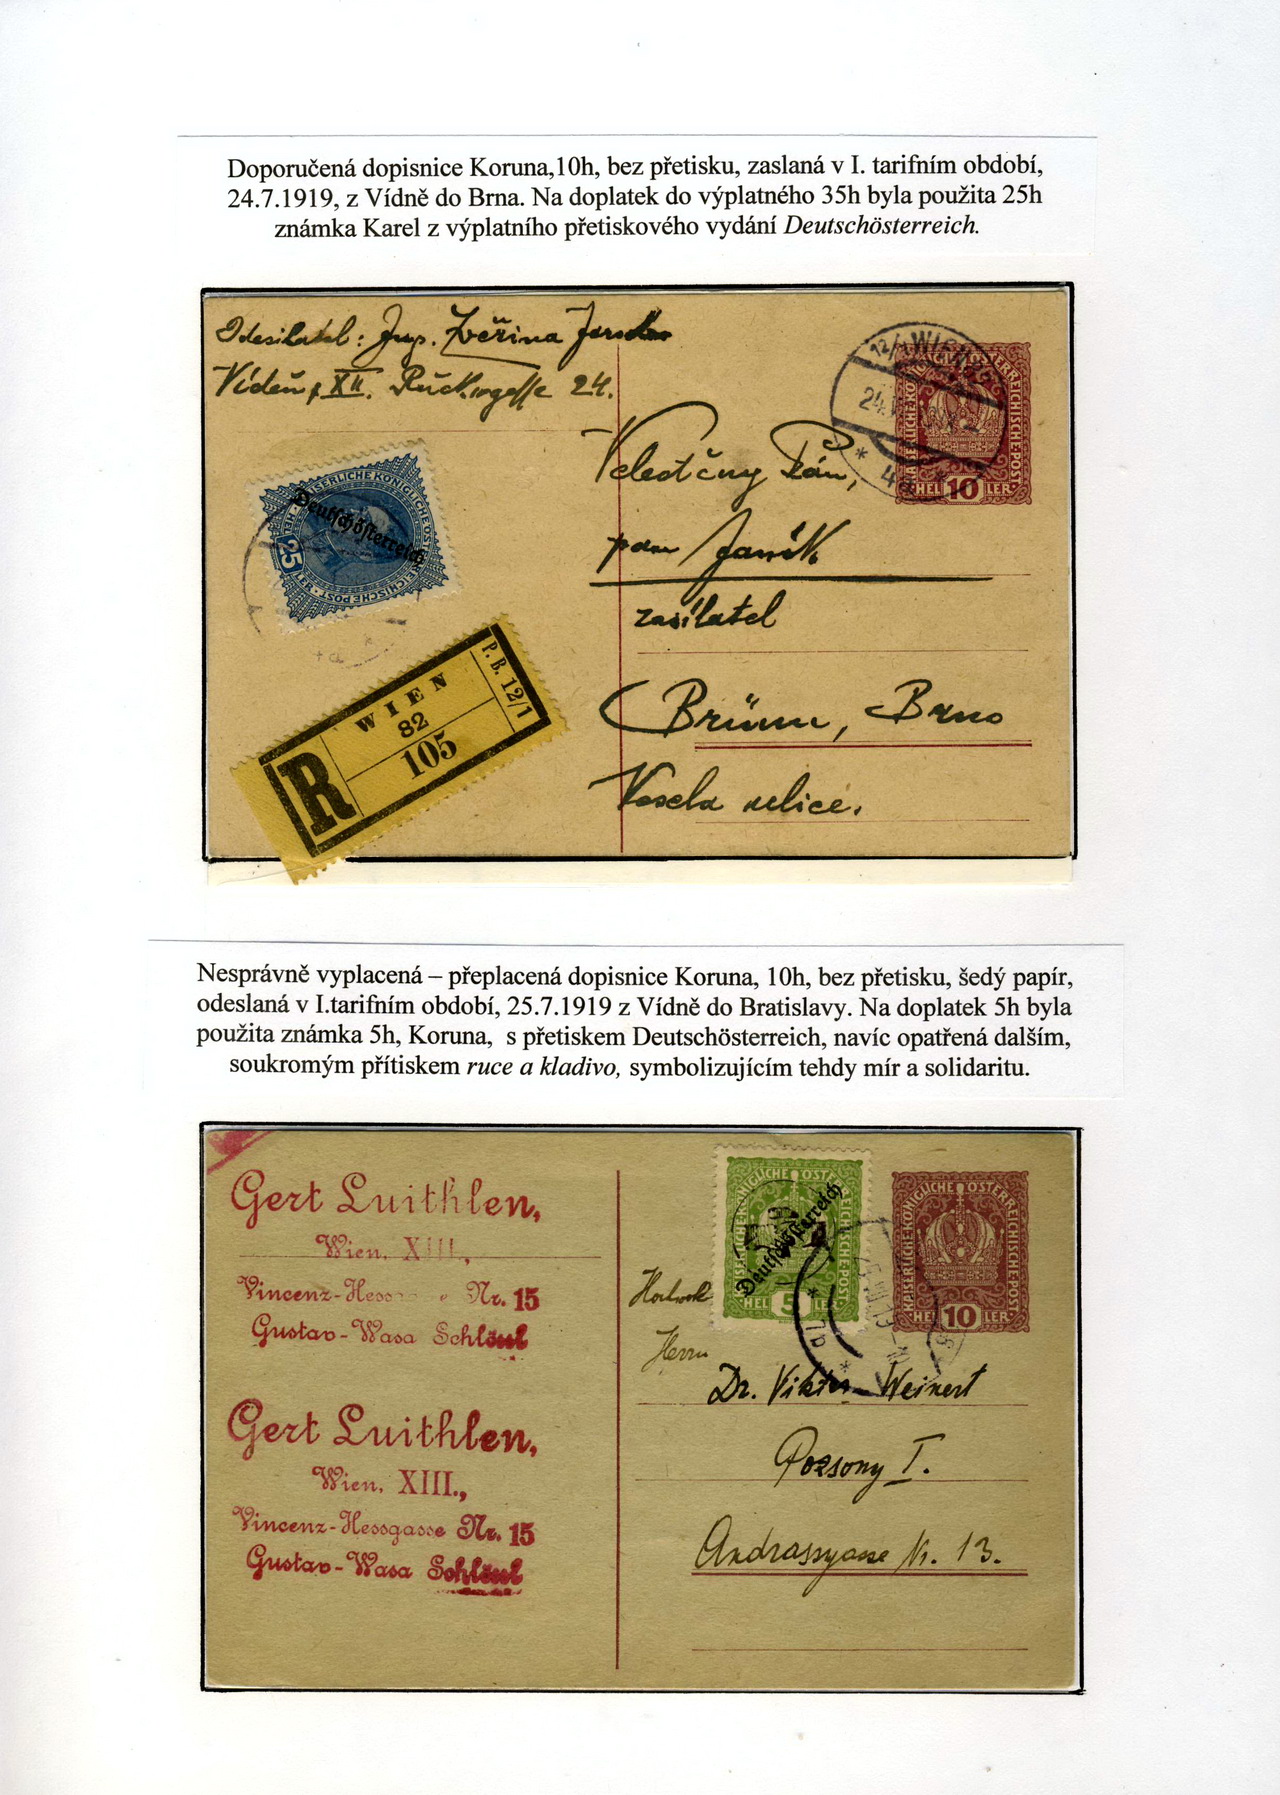 Doporučená dopisnice Koruna,10h, bez přetisku, zaslaná v I. tarifním období,
24.7.1919, z Vídně do Brna. Na doplatek do výplatného 35h byla použita 25h
známka Karel z výplatního přetiskového vydání Deutschösterreich.
Odesilatel: Zvěřina
Vídeň, XII. 24.
12/1 WIEN
24.V
* 4a *
KAISERLICHE KÖNIGLICHE ÖSTERREICHISCHE POST
HEL 10 LER
KAISERLICHE KÖNIGLICHE ÖSTERREICHISCHE POST
25
Deutschösterreich
Pán,
pan Janík
zasílatel
Brünn, Brno
ulice.
R
WIEN
82
105
P. B. 12/1
Nesprávně vyplacená – přeplacená dopisnice Koruna, 10h, bez přetisku, šedý papír,
odeslaná v I.tarifním období, 25.7.1919 z Vídně do Bratislavy. Na doplatek 5h byla
použita známka 5h, Koruna, s přetiskem Deutschösterreich, navíc opatřená dalším,
soukromým přítiskem ruce a kladivo, symbolizujícím tehdy mír a solidaritu.
Gert Luithlen,
Wien, XIII.,
Vincenz-Hess Nr. 15
Gustav-Wasa Schlössl
Gert Luithlen,
Wien, XIII.,
Vincenz-Hessgasse Nr. 15
Gustav-Wasa Schlössl
KAISERLICHE KÖNIGLICHE ÖSTERREICHISCHE POST
Deutschösterreich
HEL 5 LER
KAISERLICHE KÖNIGLICHE ÖSTERREICHISCHE POST
HEL 10 LER
Herrn
Dr. Viktor Weinert
Pozsony I.
Andrassygasse Nr. 13.